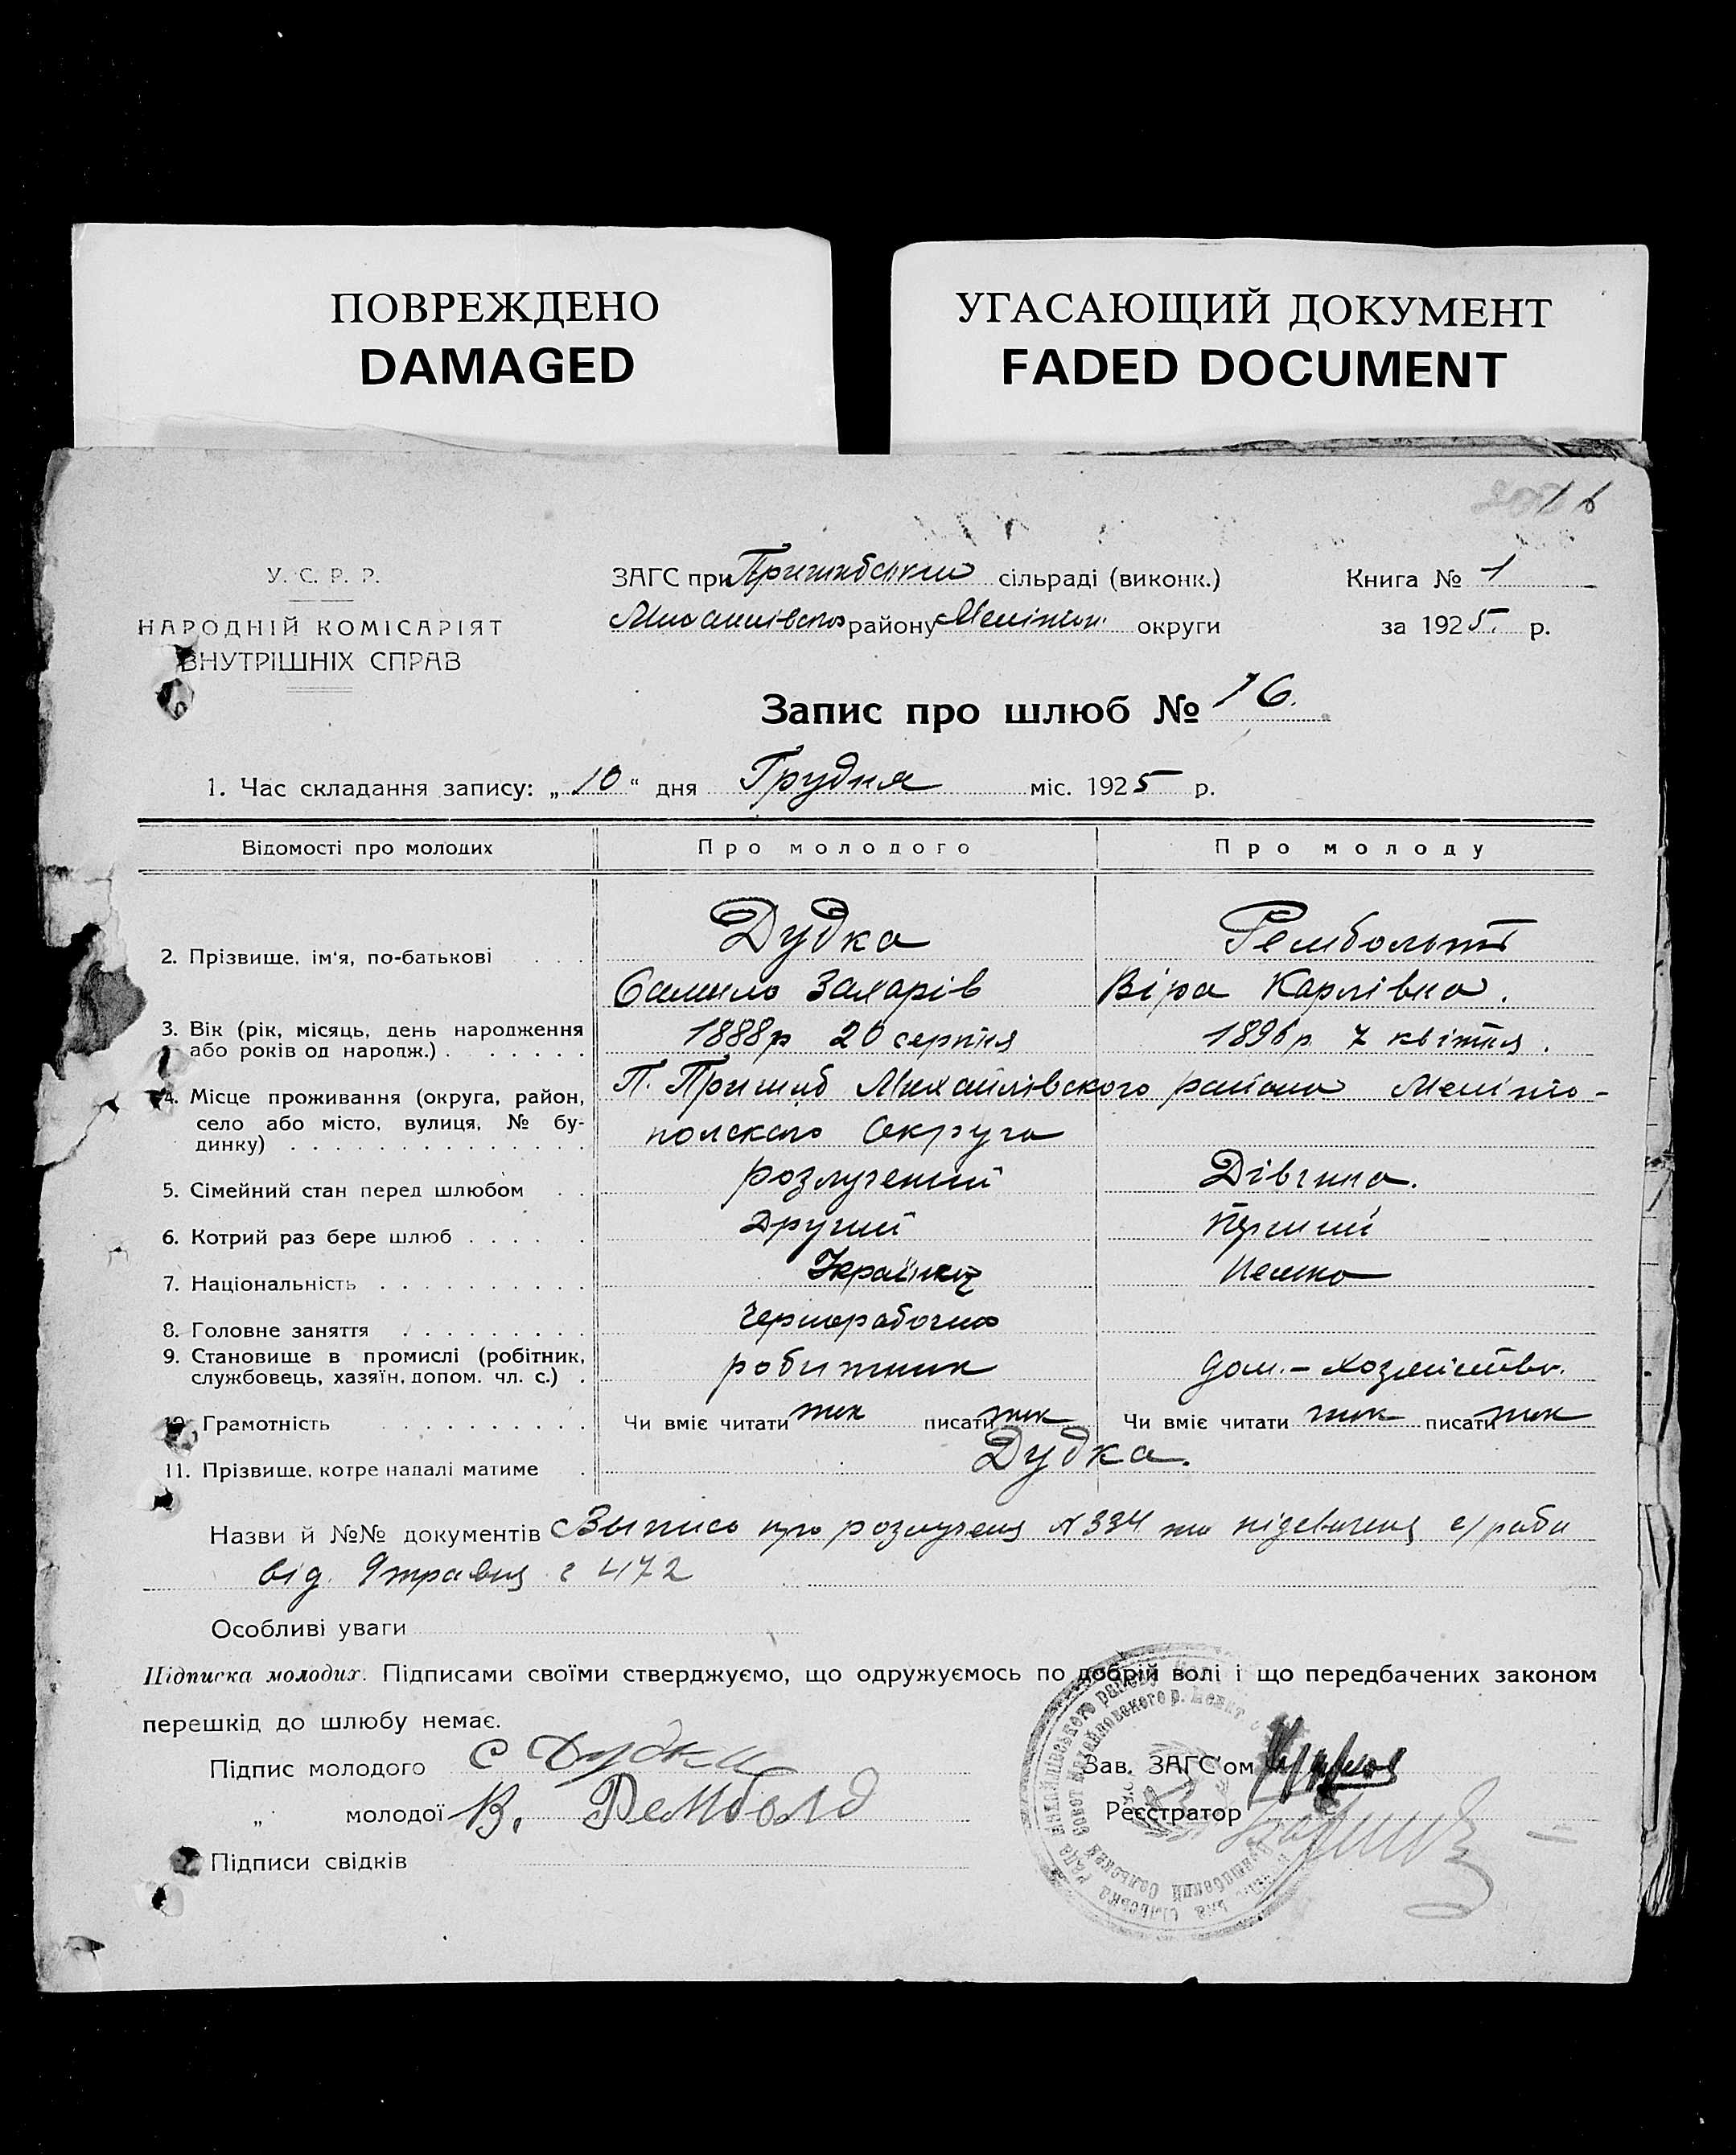 ПОВРЕЖДЕНО
DAMAGED
УГАСАЮЩИЙ ДОКУМЕНТ
FADED DOCUMENT
16
У. С. Р. Р.
НАРОДНІЙ КОМІСАРІЯТ
ВНУТРІШНІХ СПРАВ
ЗАГС при Пришибський сільраді (виконк.)
Михайлівского району Мелітоп. округи
Книга № 1
за 1925. р.
Запис про шлюб № 16.
1. Час складання запису: „ 10 “ дня Грудня міс. 1925 р.
Відомості про молодих Про молодого Про молоду
Дудка Рембольт
2. Прізвище, ім'я, по-батькові
Самило Захарів Віра Карлівна.
3. Вік (рік, місяць, день народження
1888р 20 серпня 1896р. 7 квітня.
або років од народж.)
П. Пришиб Михайлівского района Меліто-
4. Місце проживання (округа, район,
село або місто, вулиця, № бу-
полского Округа
динку)
5. Сімейний стан перед шлюбом розлучений Дівчина.
6. Котрий раз бере шлюб Другий Перший
7. Національність Українец Немка
8. Головне заняття Чернорабочий
9. Становище в промислі (робітник,
службовець, хазяїн, допом. чл. с.) робитник дом.-хозяйство.
10. Грамотність Чи вміє читати так писати так Чи вміє читати так писати так
11. Прізвище, котре надалі матиме Дудка.
Назви й №№ документів Выпись про розлученя № 334 та підсвіченя с/ради
від. 9 травня 472
Особливі уваги
Підписка молодих. Підписами своїми стверджуємо, що одружуємось по добрій волі і що передбачених законом
перешкід до шлюбу немає.
Підпис молодого С Дудка
„ молодої В. Рембольд
Підписи свідків
Зав. ЗАГС'ом
Реєстратор